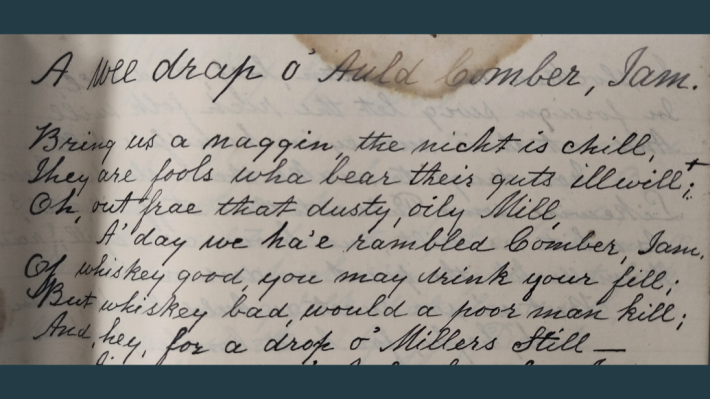 A wee drap o' Auld Comber, Jam.
Bring us a naggin, the nicht is chill,
They are fools wha bear their guts illwill;
Oh, out frae that dusty, oily Mill,
A' day we ha'e rambled Comber, Jam.
Of whiskey good, you may drink your fill;
But whiskey bad, would a poor man kill;
And, hey, for a drop o' Millers Still —